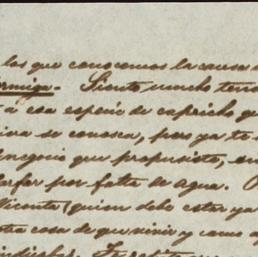 los que conocemos la causa d
ormiga. Siento mucho ten
a esa especie de capricho qu
se conosca, pero ya te
negocio que propusiste, en
por falta de agua.
Vicente (quien debe estar ya
otra casa de que vivir y como